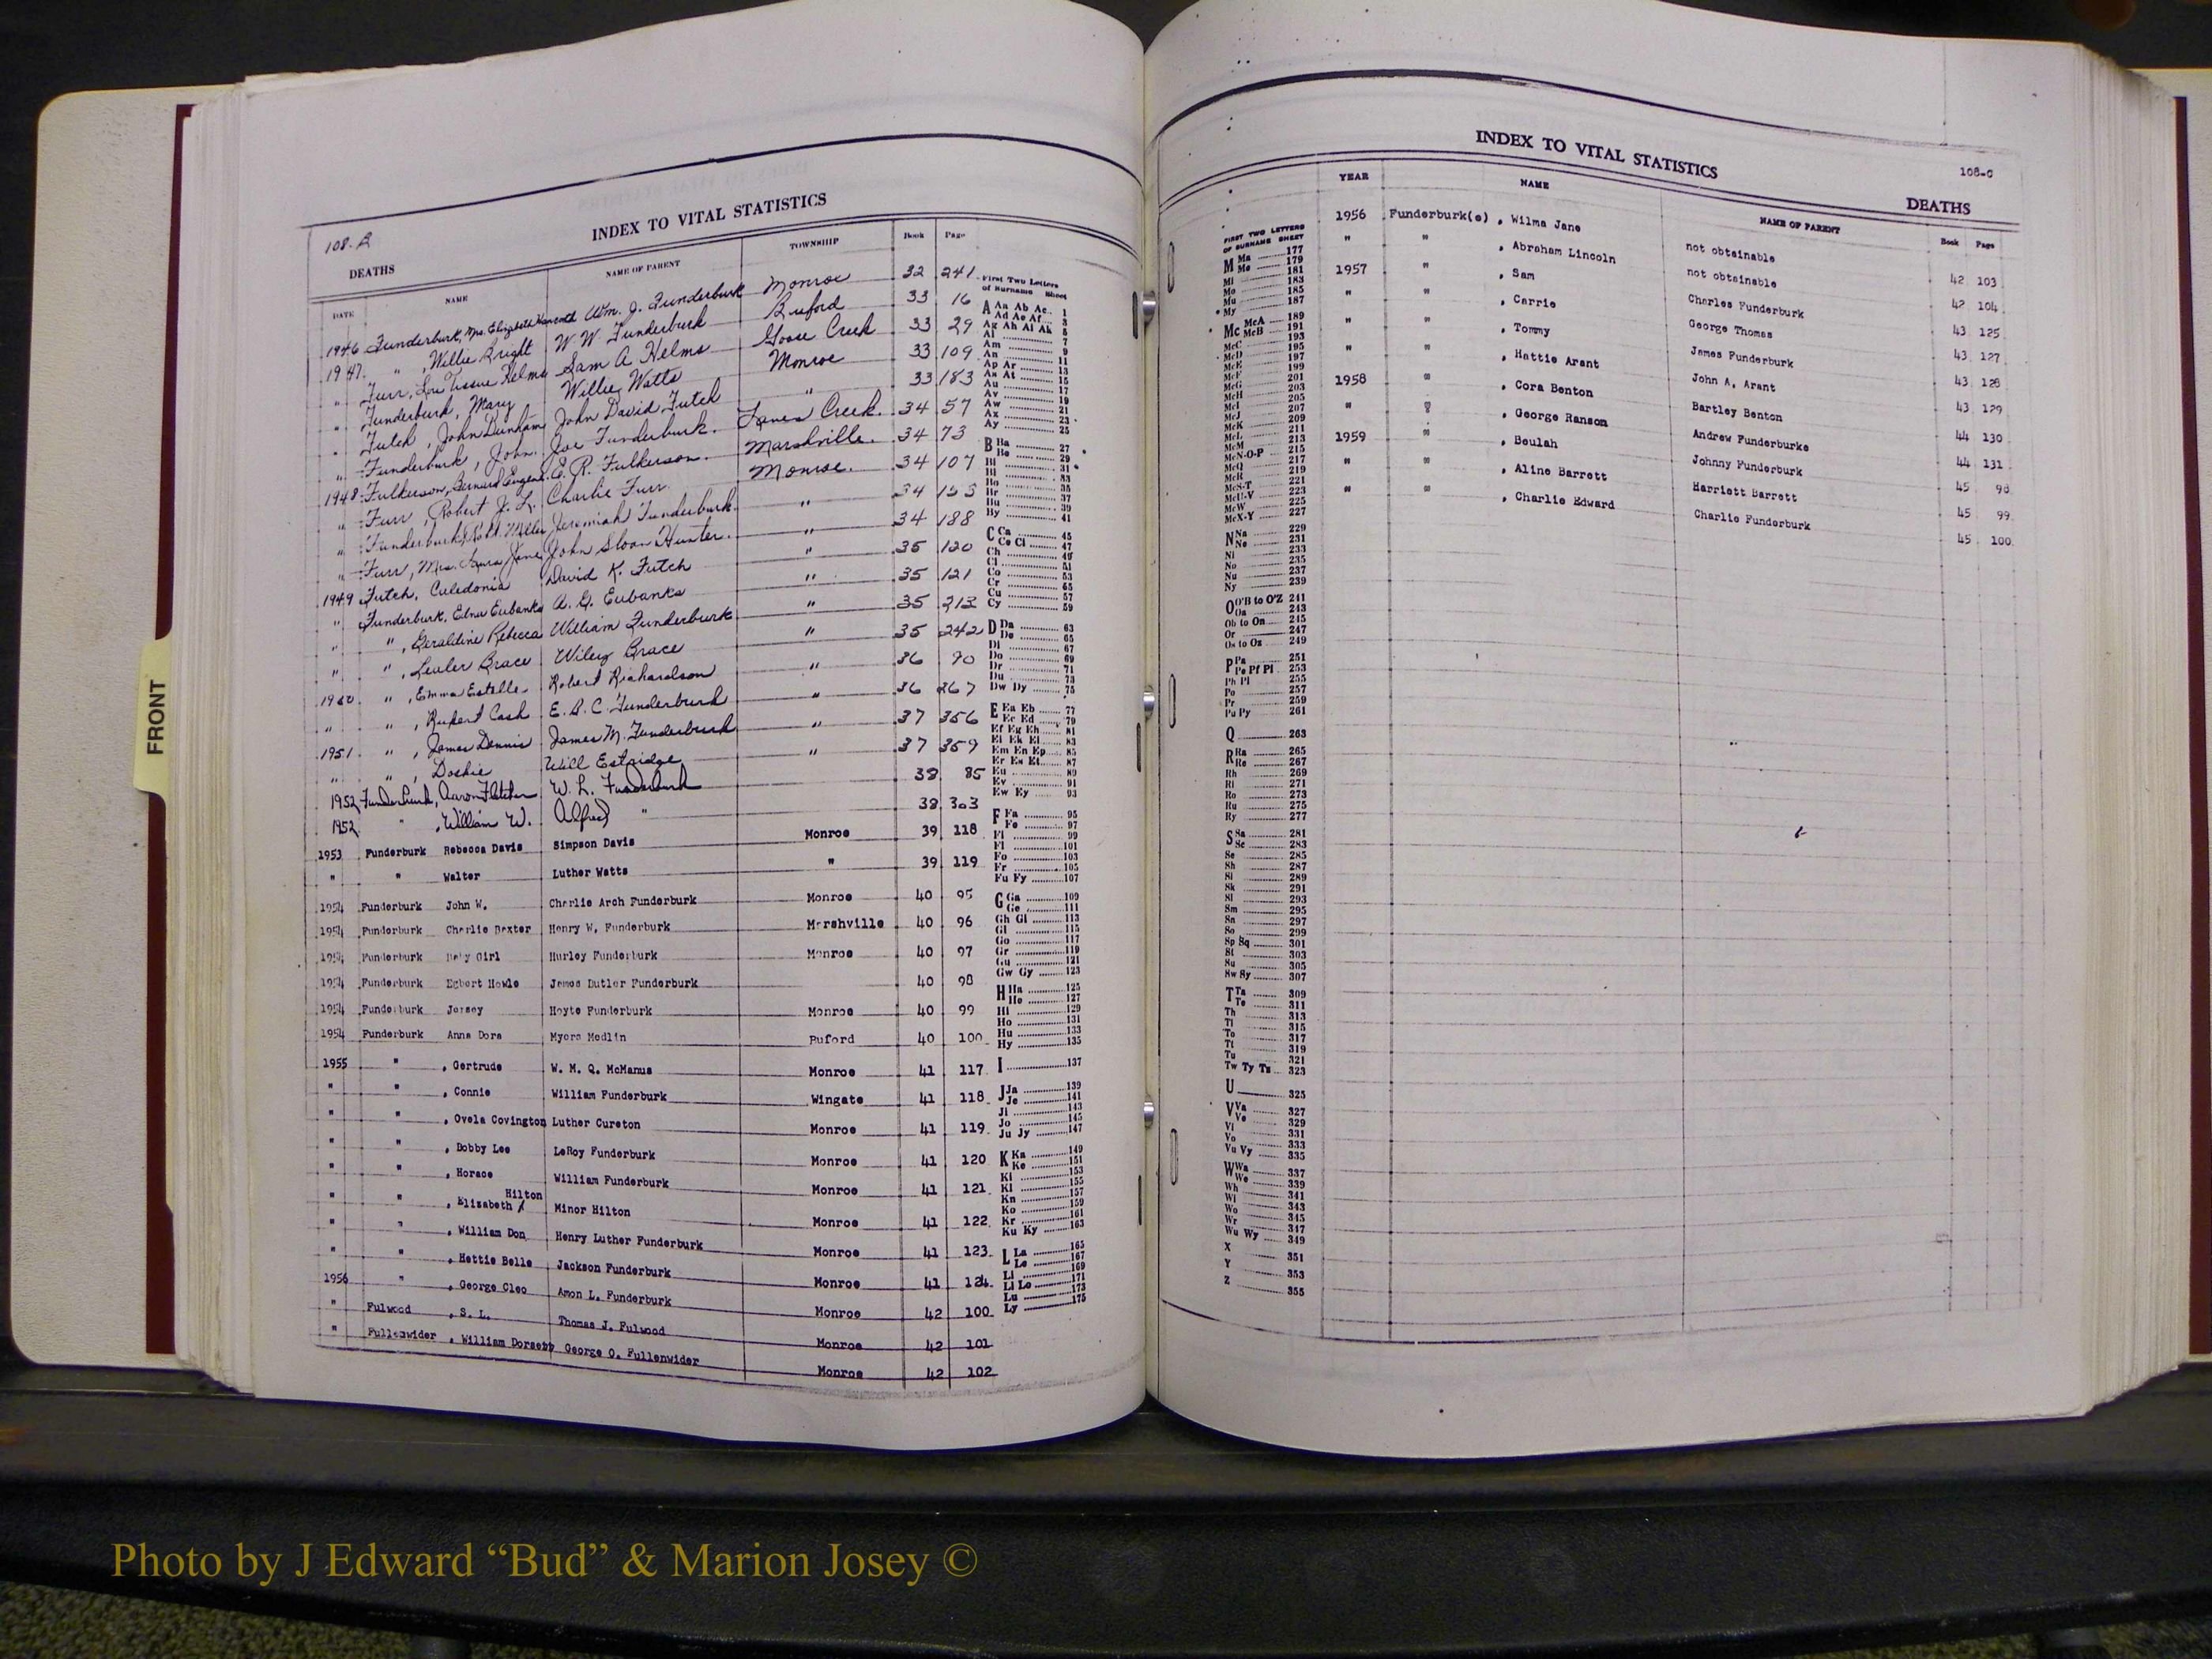 108-B
INDEX TO VITAL STATISTICS
DEATHS
DATE NAME NAME OF PARENT TOWNSHIP Book Page
1946 Funderburk, Mrs. Elizabeth Wm. J. Funderburk Monroe 32 241
1947 " , Willie Bright W. W. Funderburk Buford 33 16
" Furr, Lou Tissue Helms Sam A Helms Goose Creek 33 29
" Funderburk, Mary Willie Watts Monroe 33 109
" Futch, John Dunham John David Futch " 33 183
" Funderburk, John Joe Funderburk Lanes Creek 34 57
1948 Fulkerson, Bernard Eugene E. R. Fulkerson Marshville 34 73
" Furr, Robert J. L. Charlie Furr Monroe 34 107
" Funderburk, Miller Jeremiah Funderburk " 34 153
" Furr, Mrs. Laura Jane John Sloan Hunter " 34 188
1949 Futch, Caledonia David K. Futch " 35 120
" Funderburk, Edna Eubanks A. Q. Eubanks " 35 121
" " , Geraldine Rebecca William Funderburk " 35 213
" " , Leuler Brace Wiley Brace " 35 242
1950 " , Emma Estelle Robert Richardson " 36 90
" " , Rupert Cash E. A. C. Funderburk " 36 267
1951 " , James Dennis James M. Funderburk " 37 356
" " , Doskie Will Estridge " 37 359
1952 Funderburk, Aaron Fletcher W. L. Funderburk 38 85
1952 " , William W. Alfred " 38 303
1953 Funderburk Rebecca Davis Simpson Davis Monroe 39 118
" " Walter Luther Watts " 39 119
1954 Funderburk John W. Charlie Arch Funderburk Monroe 40 95
1954 Funderburk Charlie Dexter Henry W. Funderburk Marshville 40 96
1954 Funderburk Baby Girl Hurley Funderburk Monroe 40 97
1954 Funderburk Egbert Howle James Butler Funderburk 40 98
1954 Funderburk Jersey Hoyte Funderburk Monroe 40 99
1954 Funderburk Anna Dora Myers Medlin Buford 40 100
1955 " , Gertrude W. M. Q. McManus Monroe 41 117
" " , Connie William Funderburk Wingate 41 118
" " , Ovela Covington Luther Cureton Monroe 41 119
" " , Bobby Lee LeRoy Funderburk Monroe 41 120
" " , Horace William Funderburk Monroe 41 121
" " , Elizabeth Hilton Minor Hilton Monroe 41 122
" " , William Don Henry Luther Funderburk Monroe 41 123
" " , Hettie Belle Jackson Funderburk Monroe 41 124
1956 " , George Cleo Amon L. Funderburk Monroe 42 100
" Fulwood , S. L. Thomas J. Fulwood Monroe 42 101
" Fullenwider , William Dorsett George O. Fullenwider Monroe 42 102
First Two Letters
of Surname Sheet
A Aa Ab Ac 1
Ad Ae Af 3
Ag Ah Ai Ak 5
Al 7
Am 9
An 11
Ap Ar 13
As At 15
Au 17
Av 19
Aw 21
Ax 23
Ay 25
B Ba 27
Be 29
Bi 31
Bl 33
Bo 35
Br 37
Bu 39
By 41
C Ca 45
Ce Ci 47
Ch 49
Cl 51
Co 53
Cr 55
Cu 57
Cy 59
D Da 63
De 65
Di 67
Do 69
Dr 71
Du 73
Dw Dy 75
E Ea Eb 77
Ec Ed 79
Ef Eg Eh 81
Ei Ek El 83
Em En Ep 85
Er Es Et 87
Eu 89
Ev 91
Ew Ey 93
F Fa 95
Fe 97
Fi 99
Fl 101
Fo 103
Fr 105
Fu Fy 107
G Ga 109
Ge 111
Gh Gi 113
Gl 115
Go 117
Gr 119
Gu 121
Gw Gy 123
H Ha 125
He 127
Hi 129
Ho 131
Hu 133
Hy 135
I 137
J Ja 139
Je 141
Ji 143
Jo 145
Ju Jy 147
K Ka 149
Ke 151
Ki 153
Kl 155
Kn 157
Ko 159
Kr 161
Ku Ky 163
L La 165
Le 167
Li 169
Ll Lo 171
Lu 173
Ly 175
INDEX TO VITAL STATISTICS
108-C
DEATHS
YEAR NAME NAME OF PARENT Book Page
1956 Funderburk(e) , Wilma Jane not obtainable 42 103
" " , Abraham Lincoln not obtainable 42 104
1957 " , Sam Charles Funderburk 43 125
" " , Carrie George Thomas 43 127
" " , Tommy James Funderburk 43 128
" " , Hattie Arant John A. Arant 43 129
1958 " , Cora Benton Bartley Benton 44 130
" " , George Ransom Andrew Funderburke 44 131
1959 " , Beulah Johnny Funderburk 45 98
" " , Aline Barrett Harriett Barrett 45 99
" " , Charlie Edward Charlie Funderburk 45 100
FIRST TWO LETTERS
OF SURNAME SHEET
M Ma 177
Me 179
Mi 181
Mo 183
Mu 185
My 187
Mc McA 189
McB 191
McC 193
McD 195
McE 197
McF 199
McG 201
McH 203
McI 205
McJ 207
McK 209
McL 211
McM 213
McN-O-P 215
McQ 217
McR 219
McS-T 221
McU-V 223
McW 225
McX-Y 227
N Na 229
Ne 231
Ni 233
No 235
Nu 237
Ny 239
O O'B to O'Z 241
Oa 243
Ob to On 245
Or 247
Os to Oz 249
P Pa 251
Pe Pf Pl 253
Ph Pi 255
Po 257
Pr 259
Pu Py 261
Q 263
R Ra 265
Re 267
Rh 269
Ri 271
Ro 273
Ru 275
Ry 277
S Sa 281
Sc 283
Se 285
Sh 287
Si 289
Sk 291
Sl 293
Sm 295
Sn 297
So 299
Sp Sq 301
St 303
Su 305
Sw Sy 307
T Ta 309
Te 311
Th 313
Ti 315
To 317
Tt 319
Tu 321
Tw Ty Tz 323
U 325
V Va 327
Ve 329
Vi 331
Vo 333
Vu Vy 335
W Wa 337
We 339
Wh 341
Wi 343
Wo 345
Wr 347
Wu Wy 349
X 351
Y 353
Z 355
FRONT
Photo by J Edward “Bud” & Marion Josey ©